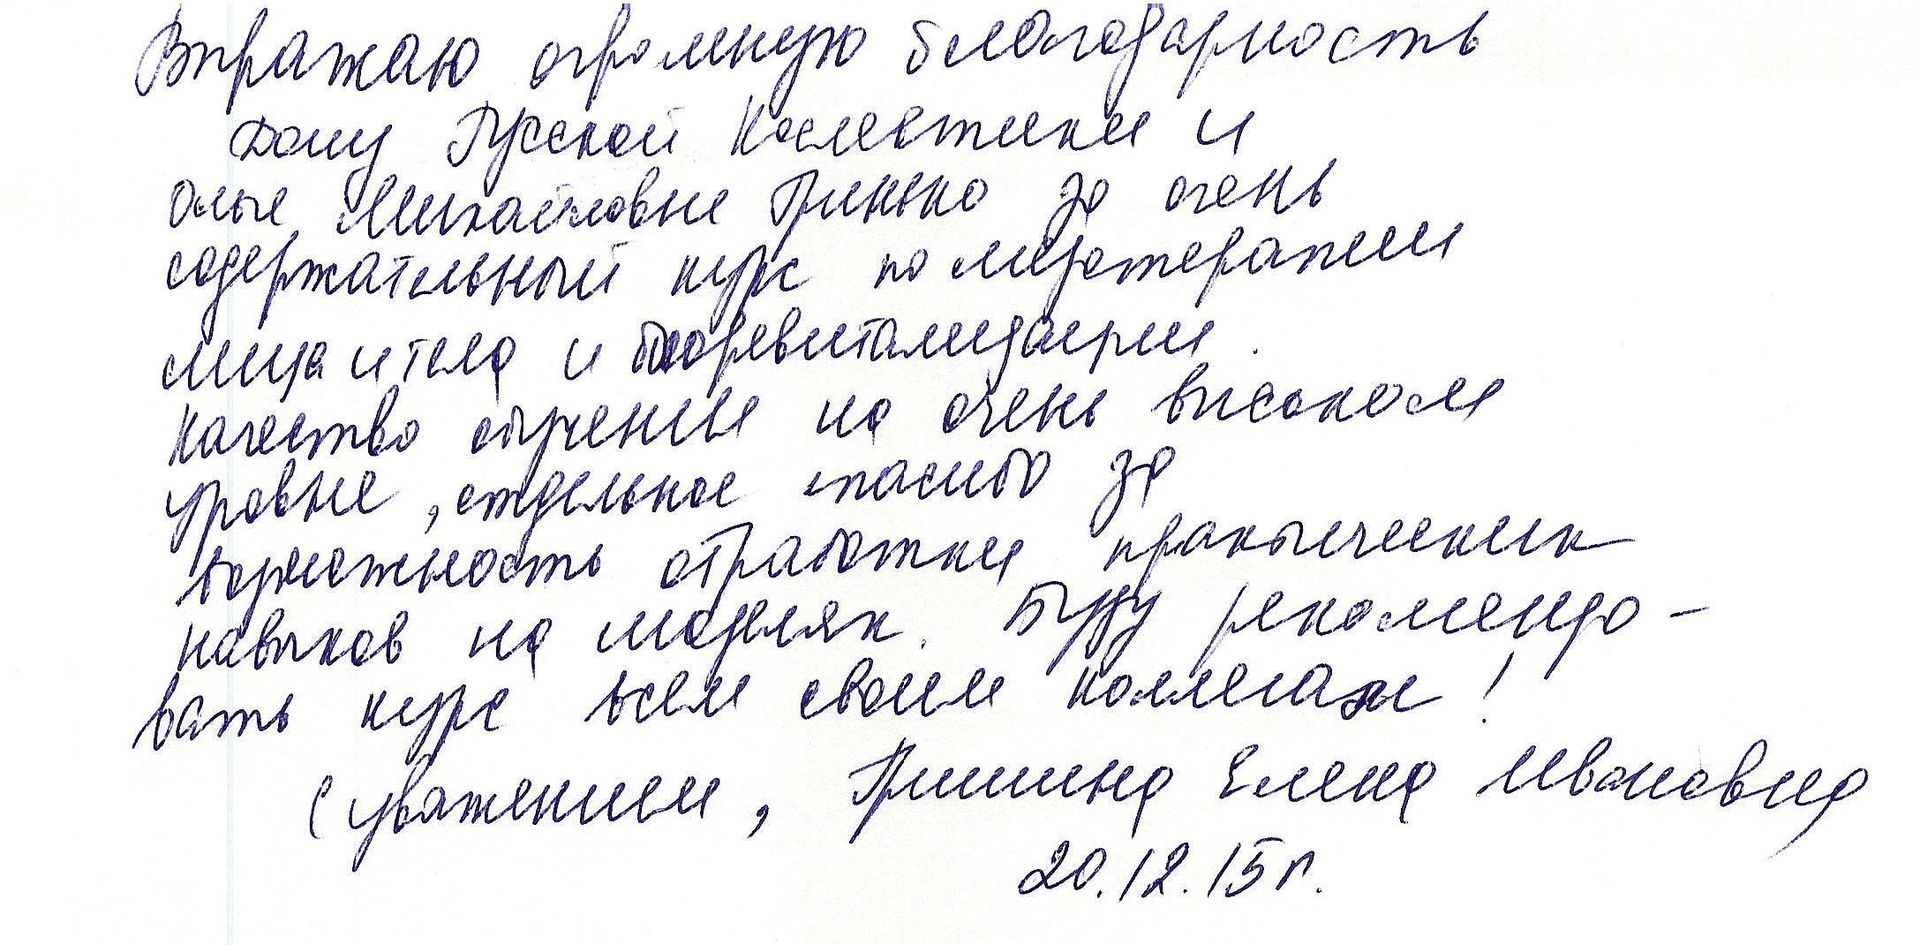 Выражаю огромную благодарность
Дому Русской Косметики и
Ольге Михайловне Гринько за очень
содержательный курс по мезотерапии
лица и тела и биоревитализации.
Качество обучения на очень высоком
уровне, отдельное спасибо за
возможность отработки практических
навыков на моделях. Буду рекомендо-
вать курс всем своим коллегам!
С уважением, Гришина Елена Ивановна
20.12.15г.